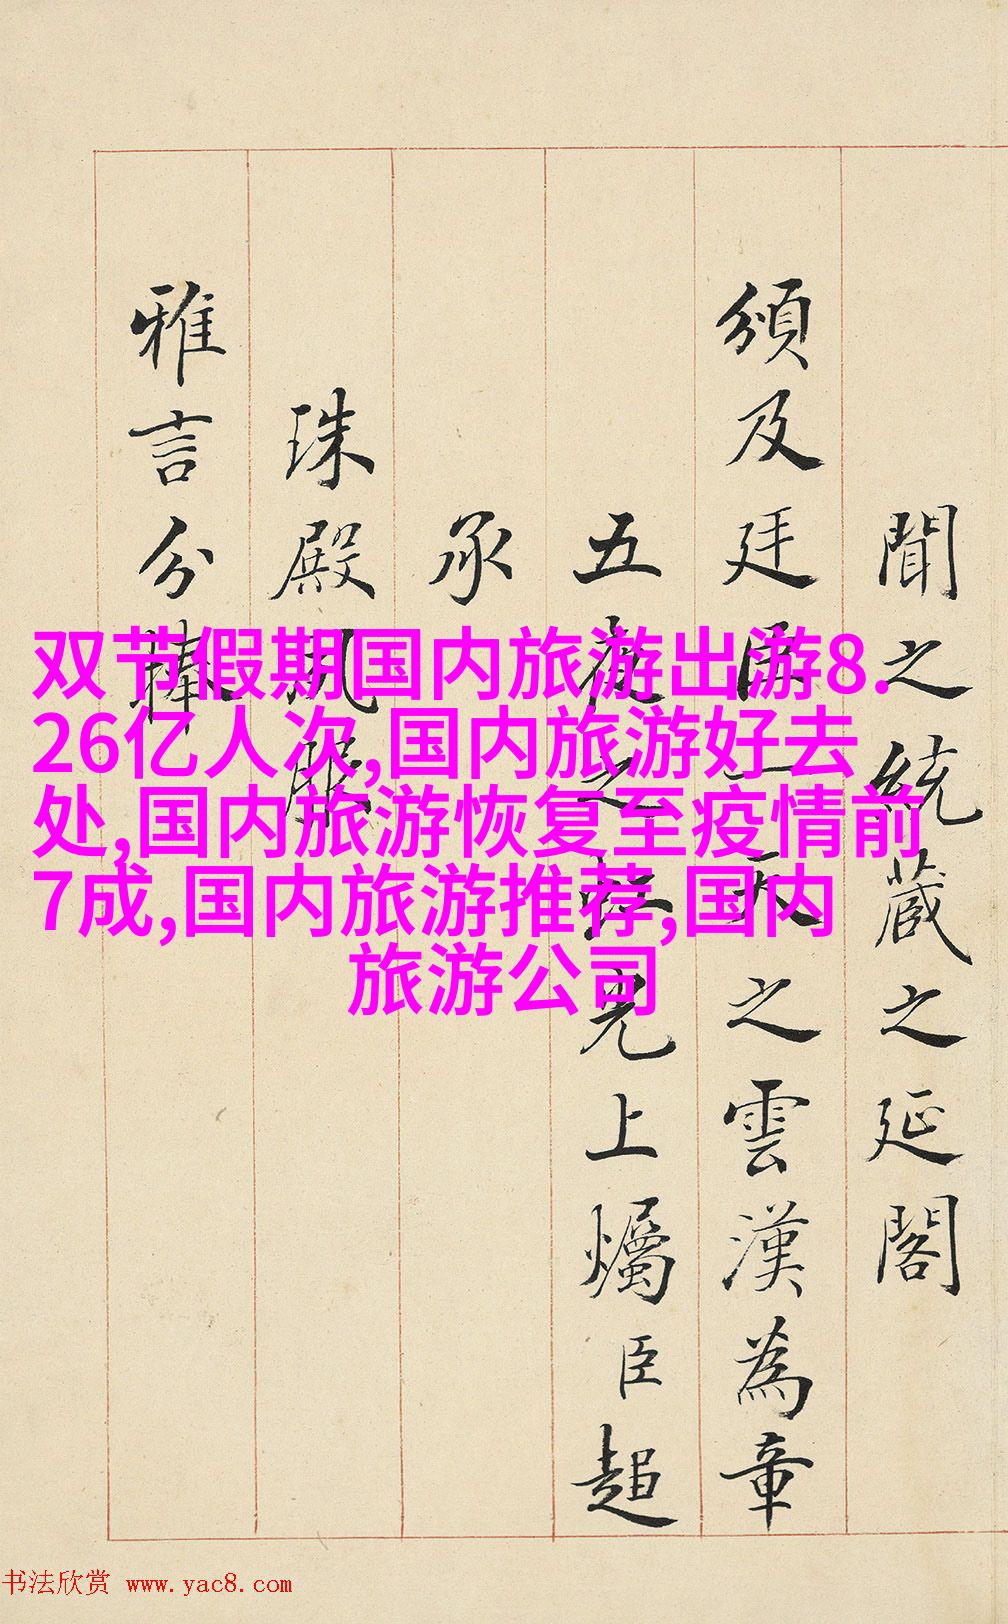 聞之統藏之延閣
頒及廷臣一天之雲漢為章
五夜之 光上爥臣超
承
珠殿 服
雅言分捧
双节假期国内旅游出游8.
26亿人次,国内旅游好去
处,国内旅游恢复至疫情前
7成,国内旅游推荐,国内
旅游公司
书法欣赏 www.yac8.com